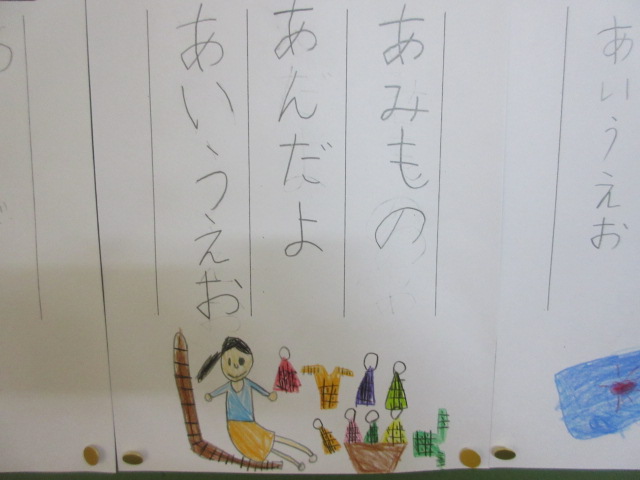 あみもの
あんだよ
あいうえお
あいうえお